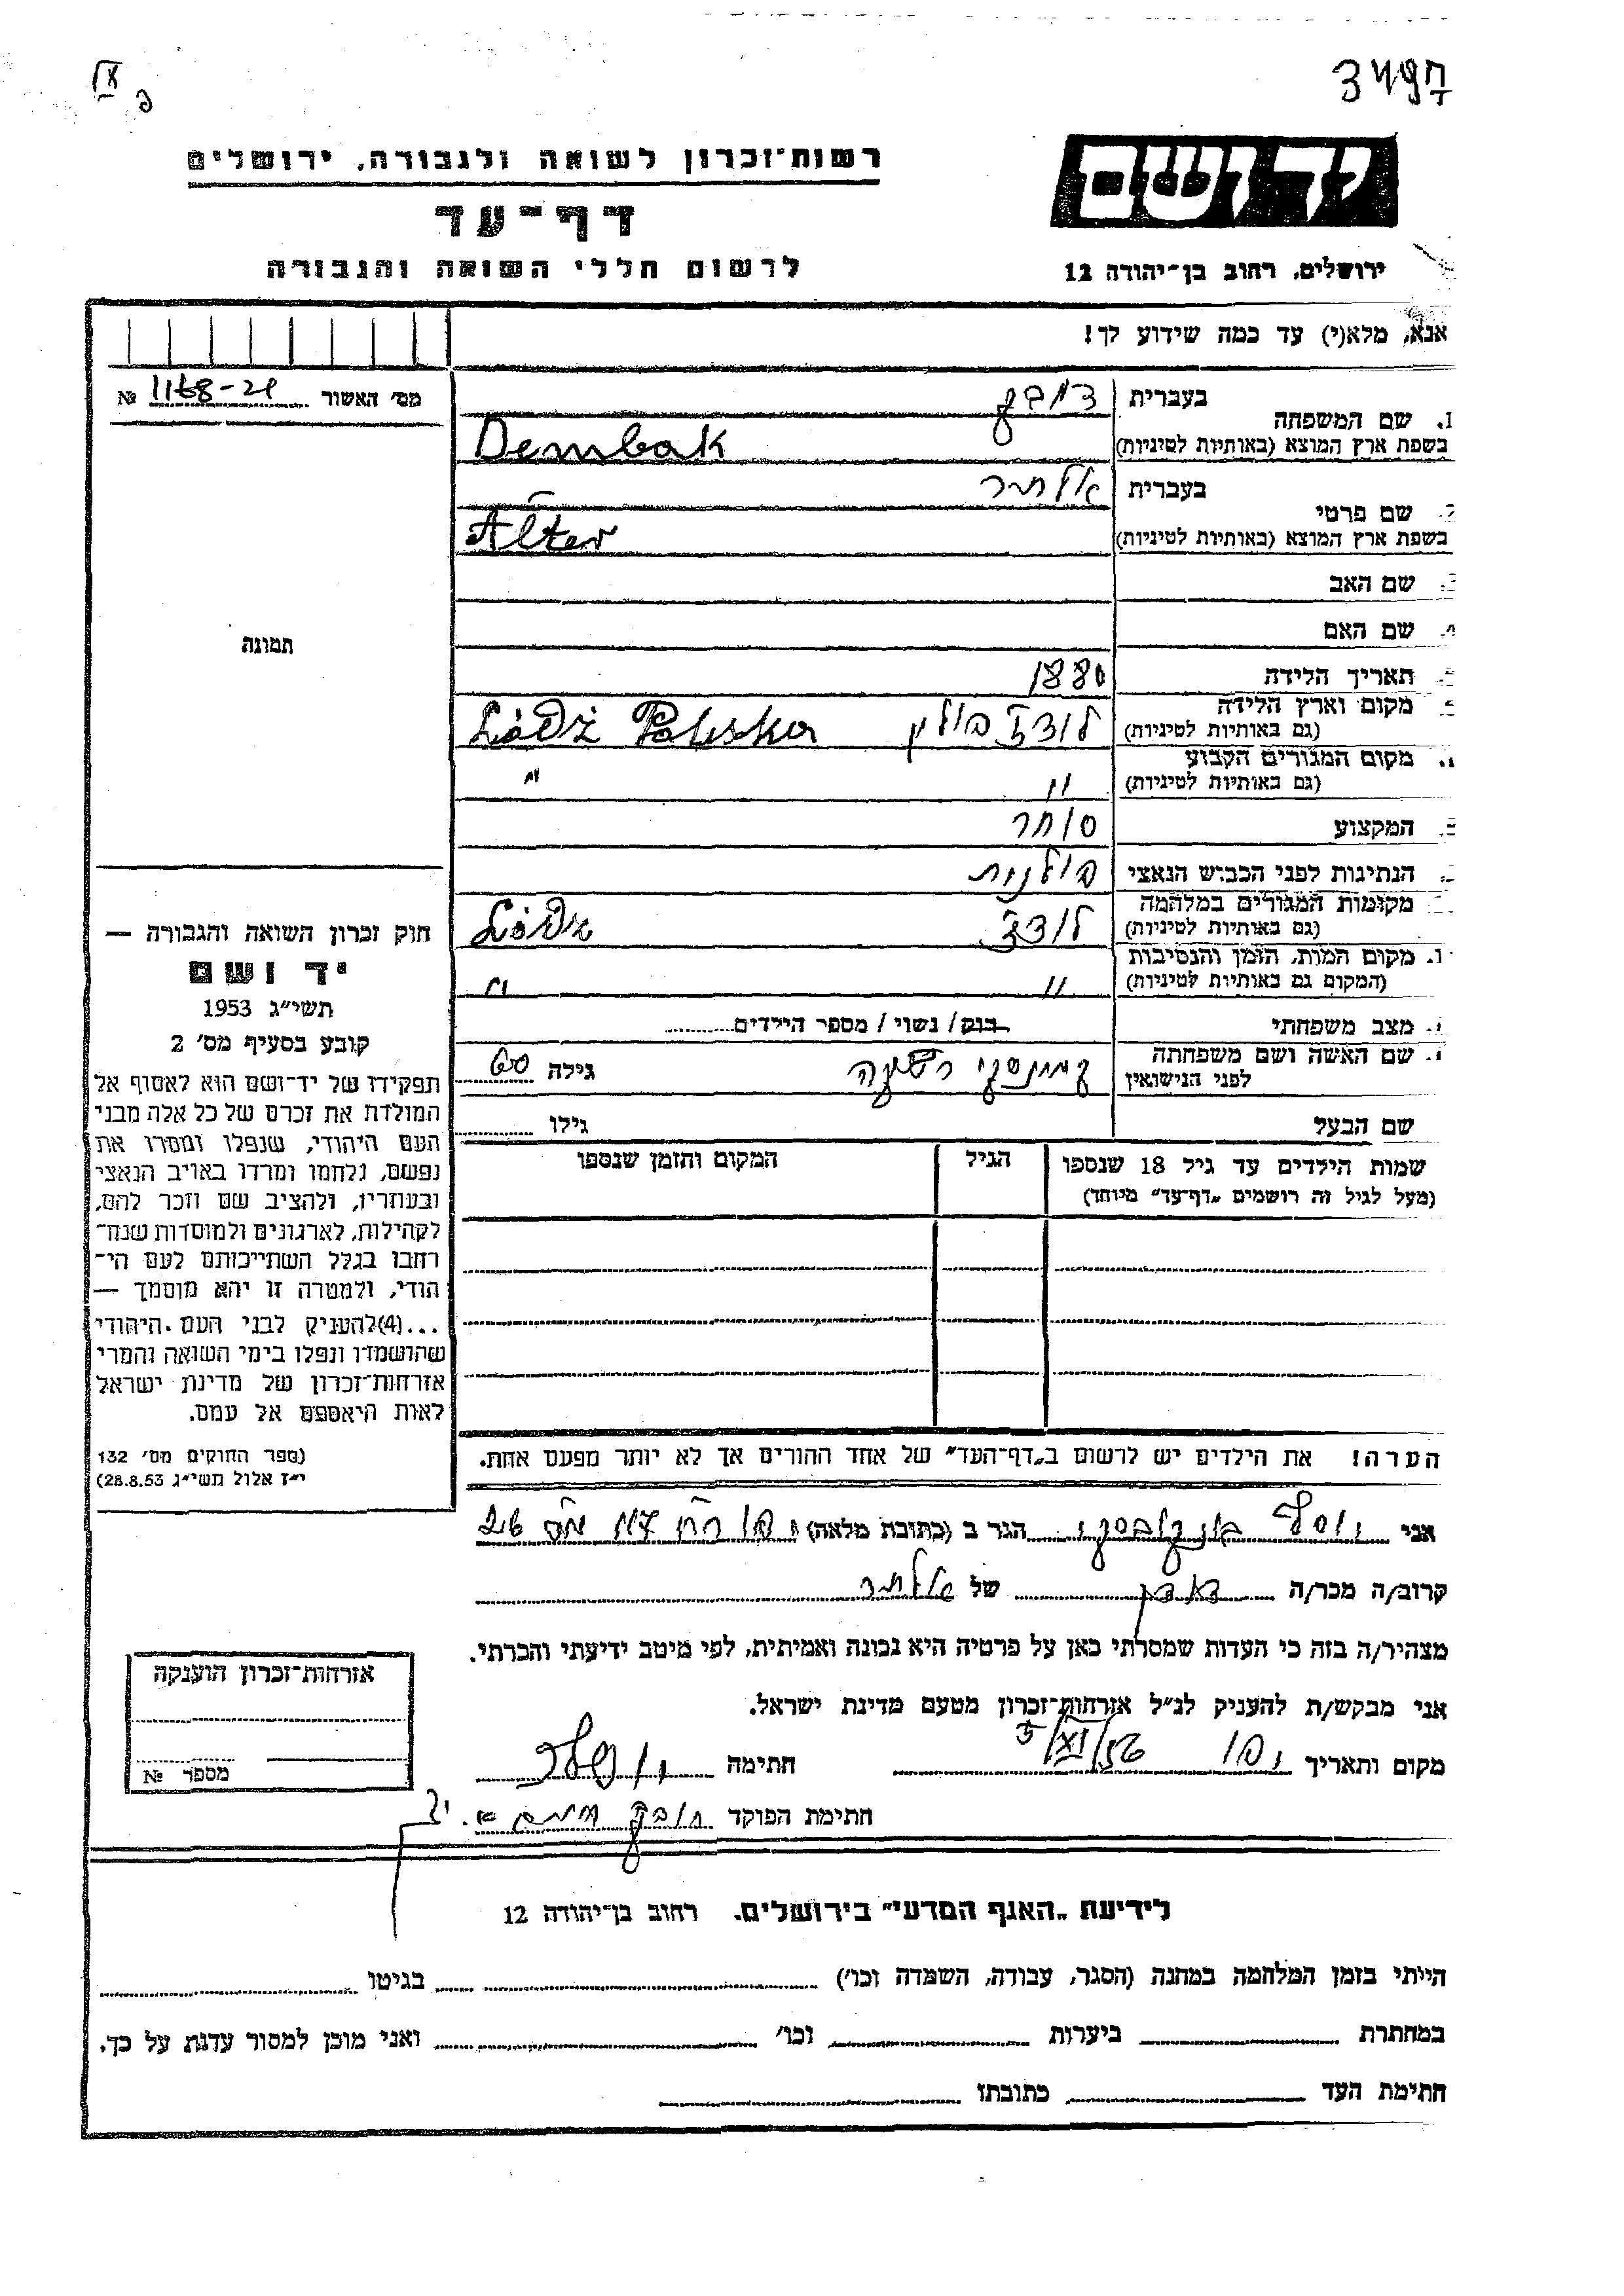 יד ושם
רשות־זכרון לשואה ולגבורה, ירושלים
דף־עד
ירושלים, רחוב בן־יהודה 12
לרשום חללי השואה והגבורה
אנא, מלא(י) עד כמה שידוע לך!
מס׳ האשור № 1168-21
1. שם המשפחה
בעברית דמבק
בשפת ארץ המוצא (באותיות לטיניות) Dembak
שם פרטי
בעברית אלתר
בשפת ארץ המוצא (באותיות לטיניות) Alter
שם האב
שם האם
תאריך הלידה 1880
מקום וארץ הלידה
(גם באותיות לטיניות) לודז׳ פולין Łódź Polska
מקום המגורים הקבוע
(גם באותיות לטיניות) " "
המקצוע סוחר
הנתינות לפני הכבוש הנאצי פולנית
מקומות המגורים במלחמה
(גם באותיות לטיניות) לודז׳ Łódź
מקום המות, הזמן והנסיבות
(המקום גם באותיות לטיניות) " "
מצב משפחתי רווק / נשוי / מספר הילדים
שם האשה ושם משפחתה
לפני הנישואין גילה 60
שם הבעל גילו
שמות הילדים עד גיל 18 שנספו
(מעל לגיל זה רושמים „דף־עד” מיוחד)
הגיל
המקום והזמן שנספו
תמונה
חוק זכרון השואה והגבורה —
יד ושם
תשי״ג 1953
קובע בסעיף מס׳ 2
תפקידו של יד־ושם הוא לאסוף אל
המולדת את זכרם של כל אלה מבני
העם היהודי, שנפלו ומסרו את
נפשם, נלחמו ומרדו באויב הנאצי
ובעוזריו, ולהציב שם וזכר להם,
לקהילות, לארגונים ולמוסדות שנח־
רבו בגלל השתייכותם לעם הי־
הודי, ולמטרה זו יהא מוסמך —
...(4)להעניק לבני העם היהודי
שהושמדו ונפלו בימי השואה והמרי
אזרחות־זכרון של מדינת ישראל
לאות היאספם אל עמם.
(ספר החוקים מס׳ 132
י״ז אלול תשי״ג 28.8.53)
הערה! את הילדים יש לרשום ב„דף־העד” של אחד ההורים אך לא יותר מפעם אחת.
אני יוסף הגר ב (כתובת מלאה) יפו
קרוב/ה מכר/ה של אלתר
מצהיר/ה בזה כי העדות שמסרתי כאן על פרטיה היא נכונה ואמיתית, לפי מיטב ידיעתי והכרתי.
אני מבקש/ת להעניק לנ״ל אזרחות־זכרון מטעם מדינת ישראל.
מקום ותאריך יפו 5/XI/56 חתימה
חתימת הפוקד
אזרחות־זכרון הוענקה
מספר №
לידיעת „האגף המדעי” בירושלים, רחוב בן־יהודה 12
הייתי בזמן המלחמה במחנה (הסגר, עבודה, השמדה וכו׳) בגיטו
במחתרת ביערות וכו׳ ואני מוכן למסור עדות על כך.
חתימת העד כתובתו